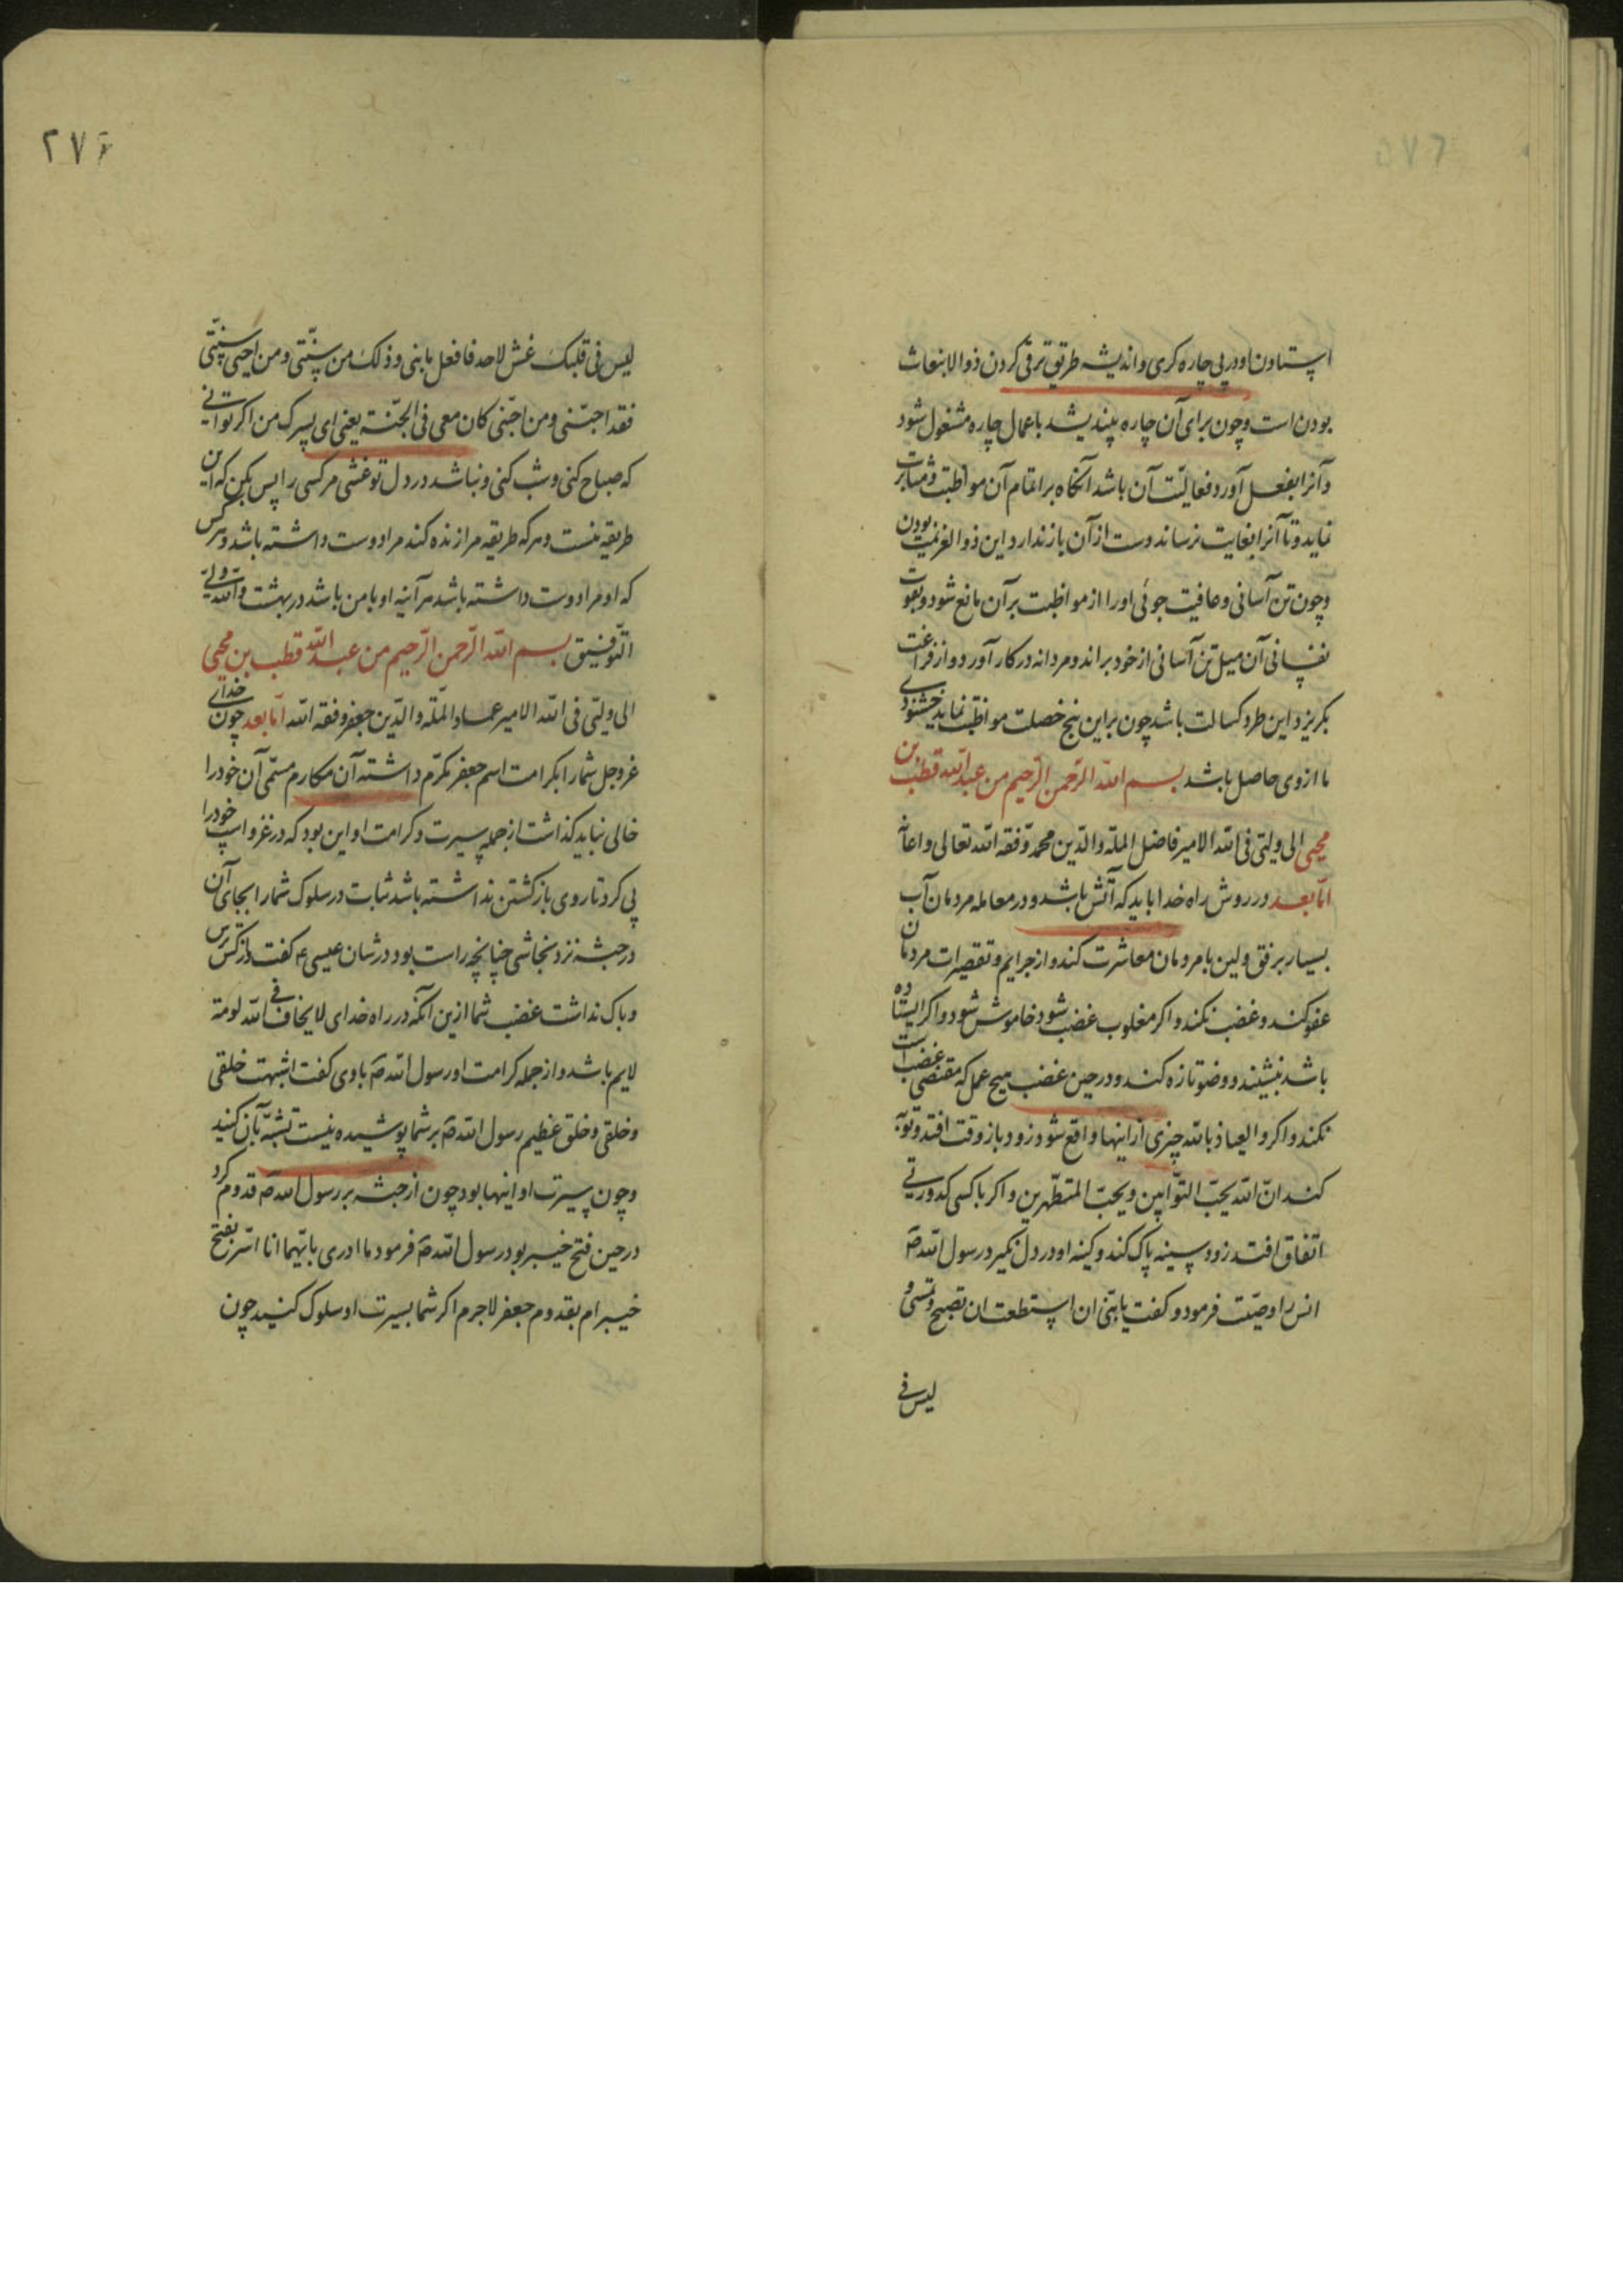 ۵۷۶
استادن او در پی چاره کری و اندیشه طریق ترقی کردن ذو الانبعاث
بودن است و چون برای آن چاره بیندیشد باعمال چاره مشغول شود
و آنرا بفعل آورد و فعالیت آن باشد آنکاه بر اتمام آن مواظبت و مثابرت
نماید و تا آنرا بغایت نرساند دست از آن باز ندارد و این ذو العزیمت بودن
و چون تن آسانی و عافیت جوئی او را از مواظبت بر آن مانع شود و بقوت
نفسانی آن میل تن آسانی از خود براند و مردانه در کار آورد و از فراغت
بکریزد و این طرد کسالت باشد چون براین پنج خصلت مواظبت نماید خشنودی
ما از وی حاصل باشد بسم الله الرّحمن الرّحیم من عبد الله قطب بن
محیی الی ولیّی فی الله الامیر فاضل الملّه والدّین محمد وفّقه الله تعالی و اعانه
امّا بعد در روش راه خدا باید که آتش باشد و در معامله مردمان آب
بسیار برفق و لین با مردمان معاشرت کند و از جرایم و تقصیرات مردمان
عفو کند و غضب نکند و اکر مغلوب غضب شود خاموش شود و اکر ایستاده
باشد بنشیند و وضو تازه کند و در حین غضب هیچ عمل که مقتضی غضب است
نکند و اکر و العیاذ بالله چیزی از اینها واقع شود زود باز وقت افتد و توبه
کند انّ الله یحبّ التوّابین و یحبّ المتطهّرین و اکر با کسی کدورتی
اتفاق افتد زود سینه پاک کند و کینه او در دل نکیرد رسول الله صه
انس را وصیّت فرمود و کفت یا بنیّ ان استطعت ان تصبح و تمسی و
لیس فی
۲۷۶
لیس فی قلبک غش لاحد فافعل یا بنی و ذلک من سنّتی و من احیی سنّتی
فقد احبّنی و من احبّنی کان معی فی الجنّة یعنی ای پسرک من اکر توانی
که صباح کنی و شب کنی و نباشد در دل تو غشی مر کسی را پس بکن که این
طریقه منست و هر که طریقه مرا زنده کند مرا دوست داشته باشد و هر کس
که او مرا دوست داشته باشد هر آینه او با من باشد در بهشت و الله ولیّ
التّوفیق بسم الله الرّحمن الرّحیم من عبد الله قطب بن محیی
الی ولیّی فی الله الامیر عماد الملّه و الدّین جعفر وفقه الله امّا بعد چون خدای
عزوجل شما را بکرامت اسم جعفر مکرّم داشته آن مکارم مسمّی آن خود را
خالی نباید کذاشت از جمله سیرت و کرامت او این بود که در غزو اسپ خود را
پی کرد تا روی باز کشتن نداشته باشد ثبات در سلوک شما را بجای آن
در حبشه نزد نجاشی چنانچه راست بود در شان عیسی ع کفت و از کس ترس
و باک نداشت غضب شما از این آنکه در راه خدای لا یخاف فی الله لومة
لایم باشد و از جمله کرامت او رسول الله صه با وی کفت اشبهت خلقی
و خلقی و خلق عظیم رسول الله صه بر شما پوشیده نیست تشبّه بآن کنید
و چون سیرت او اینها بود چون از حبشه بر رسول الله صه قدوم کرد
در حین فتح خیبر بود رسول الله صه فرمود ما ادری بایّهما انا اسّر بفتح
خیبر ام بقدوم جعفر لاجرم اکر شما بسیرت او سلوک کنید چون